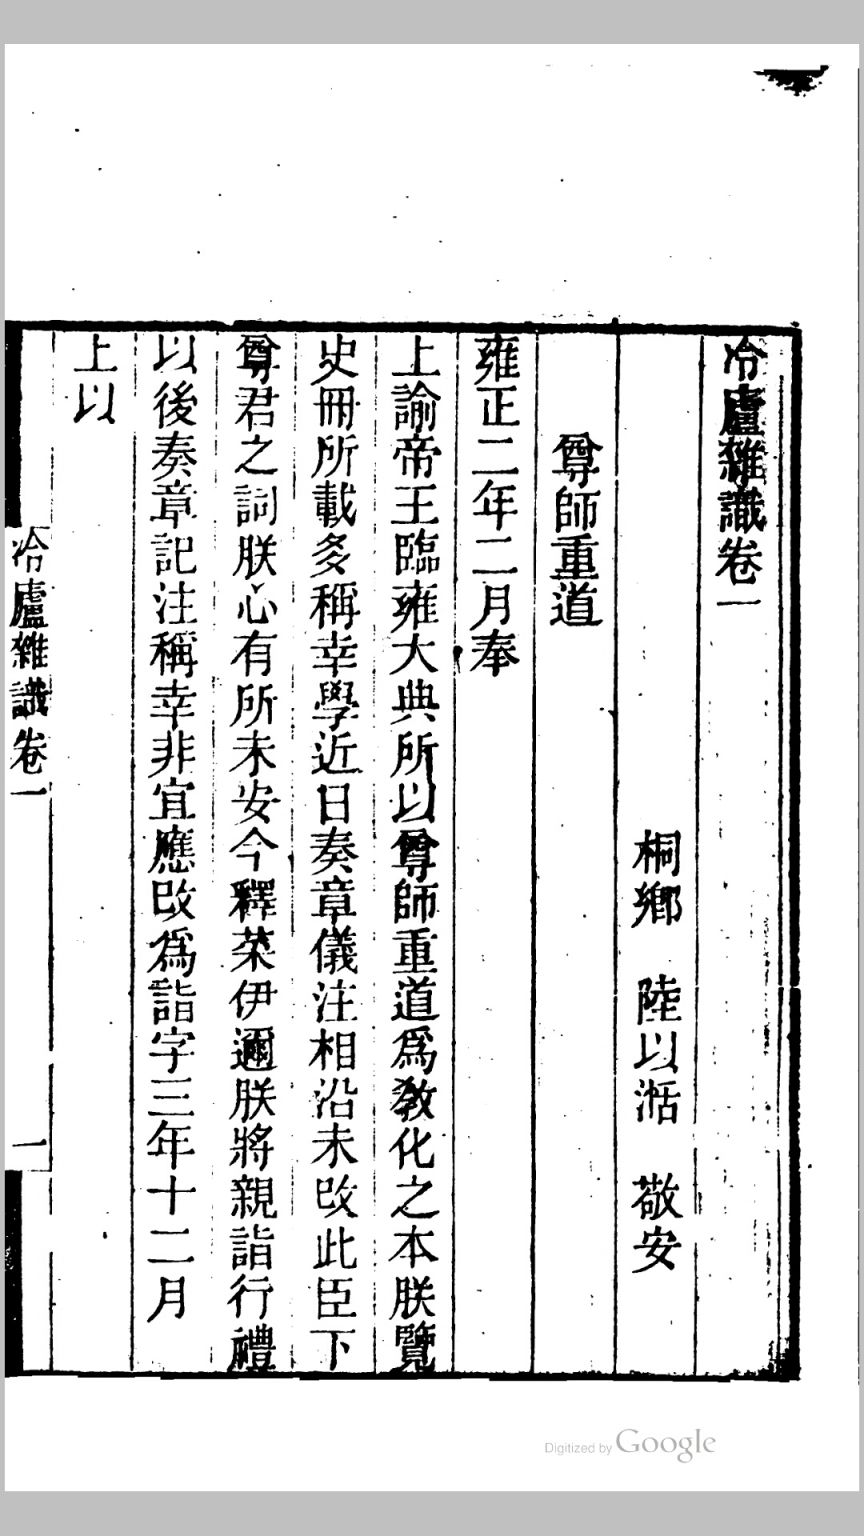 冷廬雜識卷一
桐鄉　陸以湉　敬安
尊師重道
雍正二年二月奉
上諭帝王臨雍大典所以尊師重道爲敎化之本朕覽
史冊所載多稱幸學近日奏章儀注相沿未改此臣下
尊君之詞朕心有所未安今釋菜伊邇朕將親詣行禮
以後奏章記注稱幸非宜應改爲詣字三年十二月
上以
冷廬雜識卷一
一
Digitized by Google